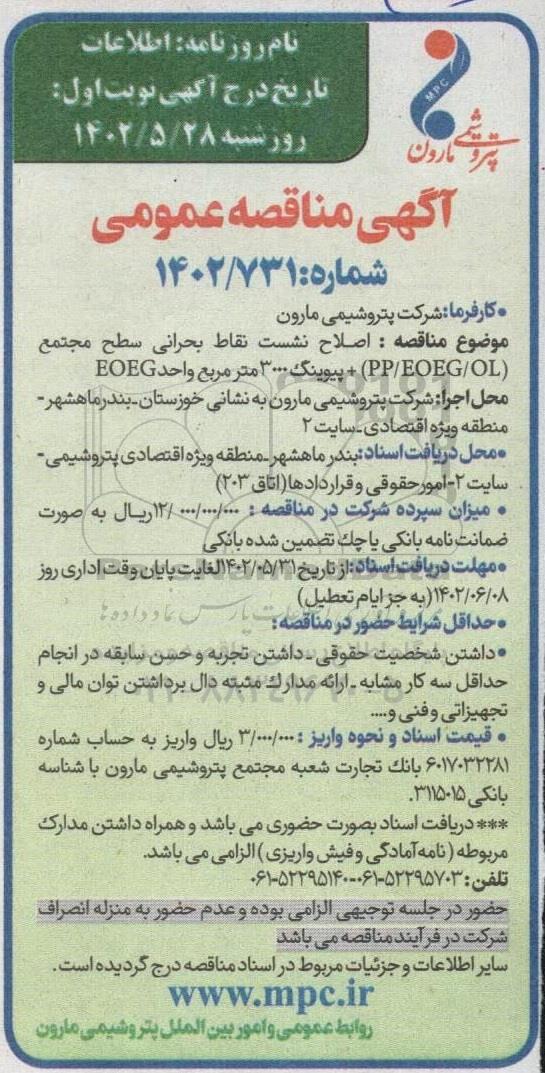 نام روزنامه: اطلاعات
تاریخ درج آگهی نوبت اول:
روز شنبه ۱۴۰۲/۵/۲۸
MPC
پتروشیمی مارون
آگهی مناقصه عمومی
شماره: ۱۴۰۲/۷۳۱
•کارفرما: شرکت پتروشیمی مارون
موضوع مناقصه : اصلاح نشست نقاط بحرانی سطح مجتمع
(PP/EOEG/OL) + پیوینگ ۳۰۰۰ متر مربع واحد EOEG
محل اجرا: شرکت پتروشیمی مارون به نشانی خوزستان-بندرماهشهر-
منطقه ویژه اقتصادی-سایت ۲
•محل دریافت اسناد: بندر ماهشهر-منطقه ویژه اقتصادی پتروشیمی-
سایت ۲-امورحقوقی و قراردادها (اتاق ۲۰۳)
• میزان سپرده شرکت در مناقصه : ۱۲/۰۰۰/۰۰۰/۰۰۰ ریال به صورت
ضمانت نامه بانکی یا چک تضمین شده بانکی
•مهلت دریافت اسناد: از تاریخ ۱۴۰۲/۰۵/۳۱ لغایت پایان وقت اداری روز
۱۴۰۲/۰۶/۰۸ (به جز ایام تعطیل)
•حداقل شرایط حضور در مناقصه:
•داشتن شخصیت حقوقی - داشتن تجربه و حسن سابقه در انجام
حداقل سه کار مشابه - ارائه مدارک مثبته دال برداشتن توان مالی و
تجهیزاتی و فنی و....
• قیمت اسناد و نحوه واریز : ۳/۰۰۰/۰۰۰ ریال واریز به حساب شماره
۶۰۱۷۰۳۲۲۸۱ بانک تجارت شعبه مجتمع پتروشیمی مارون با شناسه
بانکی ۳۱۱۵۰۱۵.
*** دریافت اسناد بصورت حضوری می باشد و همراه داشتن مدارک
مربوطه (نامه آمادگی و فیش واریزی) الزامی می باشد.
تلفن: ۰۶۱-۵۲۲۹۵۷۰۳-۰۶۱-۵۲۲۹۵۱۴۰
حضور در جلسه توجیهی الزامی بوده و عدم حضور به منزله انصراف
شرکت در فرآیند مناقصه می باشد
سایر اطلاعات و جزئیات مربوط در اسناد مناقصه درج گردیده است.
www.mpc.ir
روابط عمومی و امور بین الملل پتروشیمی مارون